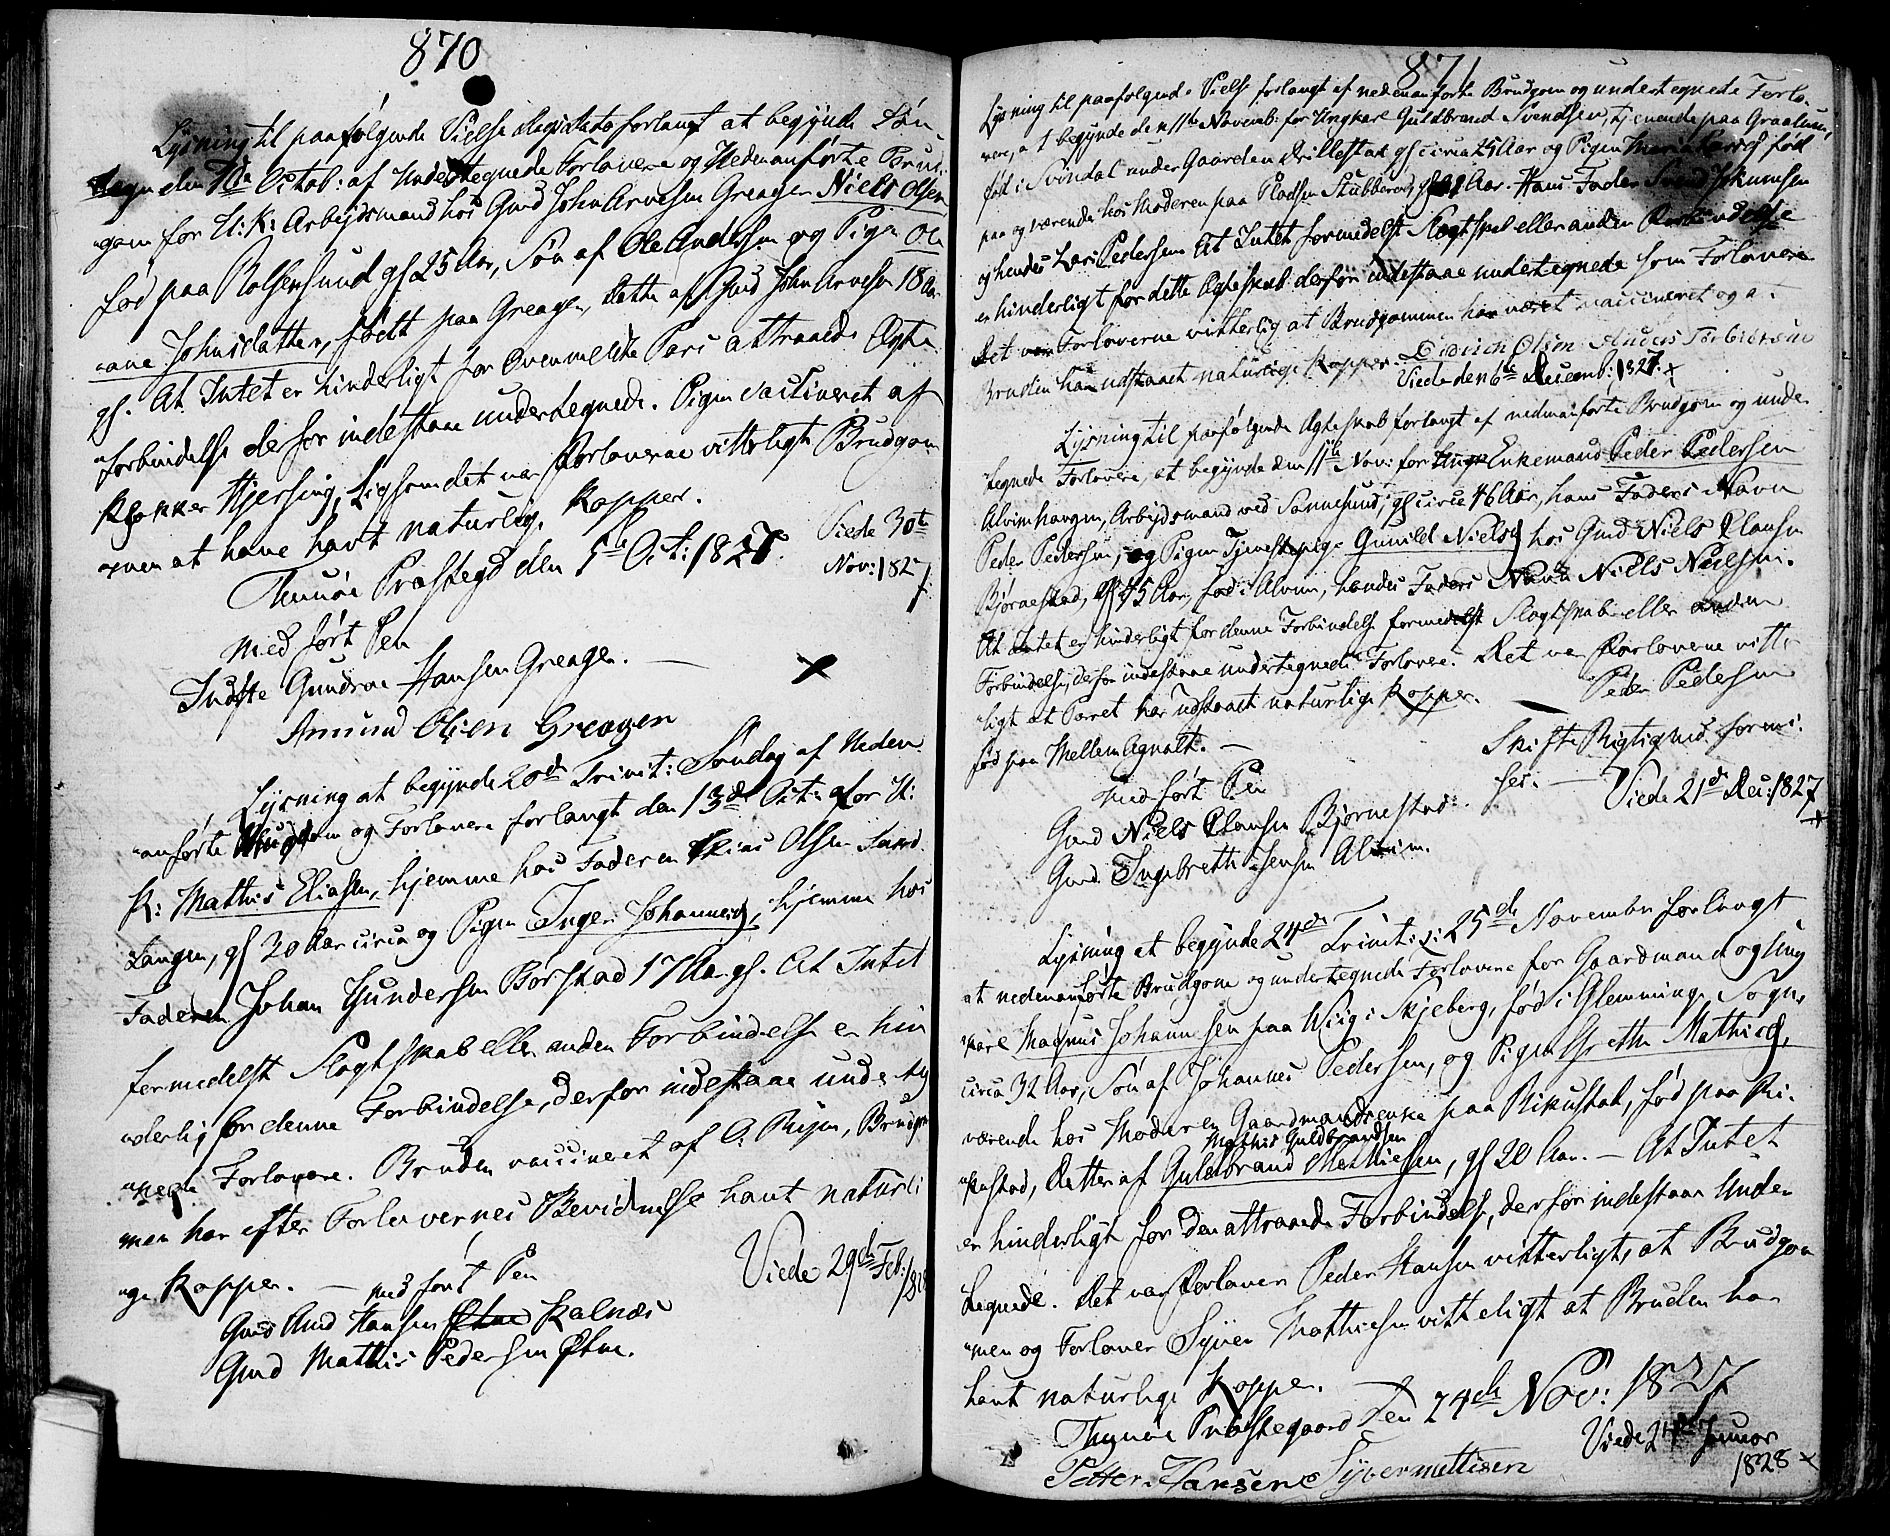 870
Lysning til paafølgende Vielse Dags Dato forlangt at begynde Søn-
dagen den 7de Octob: af Undertegnede Forlovere og Nedenanførte Brud-
gom for U: K: Arbejdsmand hos Gmd John Arvesen Greager Niels Olsen
fød paa Rolfsøsund gl 25 Aar, Søn af Ole Andersen og Pigen Ole
ane Johnsdatter, født paa Greager, Datter af Gmd John Arvesen 18 Aar
gl. At Intet er hinderligt for Ovenmeldte Pars attraaede Ægte-
forbindelse derfor indestaae undertegnede. Pigen vaccineret af
Klokker Hjersing, ligesom det var Forloverne vitterligt Brudgom-
men at have havt naturlige Kopper.
Thunøe Præstegd den 5te Oct: 1827.
Viede 30te
Nov: 1827
med ført Pen
Gundroe Hansen Greager.
Amund Olsen Greager
Lysning at begynde 20de Trinit: Søndag af Neden-
anførte Brudgom og Forlovere forlangt den 13de Oct: for U:
K: Mathis Eliasen, hjemme hos Faderen Elias Olsen Sand
tangen, gl 30 Aar circa og Pigen Inger Johannesd, hjemme hos
Faderen Johan Gundersen Borstad 17 Aar gl. At Intet
formedelst Slægtskab eller anden Forbindelse er hin
derlig for denne Forbindelse, derfor indestaae underteg
nede Forlovere. Bruden vaccineret af C: Rejer, Brudgom
men har efter Forlovernes Bevidnelse havt naturli
ge Kopper. — med ført Pen
Viede 29de Feb: 1828
Gmd And Hansen Kalnæs
Gmd Mathis Pedersen Øtne.
871
Lysning til paafølgende Vielse forlangt af nedenanførte Brudgom og undertegnede Forlo-
vere, at begynde den 11te Novemb: for Ungkarl Guldbrand Svendsen, tjenende paa Graalum,
fød i Svindal under Gaarden Drillestad gl circa 25 Aar og Pigen Maria Larsd fød
paa og værende hos Moderen paa Pladsen Stubberød gl Aar. Hans Fader Svend Johnsen
og hendes Lars Pedersen At Intet formedelst Slægtskab eller anden Forbindelse
er hinderligt for dette Ægteskab derfor indestaae undertegnede som Forlovere
Det var Forloverne vitterlig at Brudgommen har været vaccineret og at
Bruden har udstaaet naturlige Kopper. Didrich Olsen Anders Torbiørsen
Viede den 6te Decemb: 1827. x
Lysning til paafølgende Ægteskab forlangt af nedenanførte Brudgom og under
tegnede Forlovere, at begynde den 11te Nov: for Enkemand Peder Pedersen
Alvimhaugen, Arbejdsmand ved Sannesund, gl circa 46 Aar, hans Faders Navn
Peder Pedersen, og Pigen Tjenestepige Gunild Nielsd hos Gmd Niels Clausen
Bjørnestad, gl 45 Aar, fød i Alvim, hendes Faders Navn Niels Nielsen.
At Intet er hinderligt for denne Forbindelse formedelst Slægtskab eller anden
Forbindelse, derfor indestaae undertegnede Forlovere. Det var Forloverne vitter-
ligt at Parret har udstaaet naturlige Kopper. — Peder Pedersen
fød paa Mellem Agnalt. —
Skifte Rigtighed forevi-
ses. — Viede 21de Dec: 1827
med ført Pen
Gmd Niels Clausen Bjørnestad.
Gmd Ingebreth Jensen Alvim.
Lysning at begynde 24de Trinit: ɔ: 25de November forlangt
af nedenanførte Brudgom og undertegnede Forlovere for Gaardmand og Ung
karl Magnus Johannesen paa Wiig i Skjeberg, fød i Glemminge Sogn,
circa 32 Aar, Søn af Johannes Pedersen, og Pigen Grethe Mathisd,
værende hos Moderen Gaardmandsenke paa Rikustad, fød paa Ri-
kustad, Datter af Guldbrand Mathiesen, gl 20 Aar. — At Intet
Mathis Guldbrandsen
er hinderligt for den attraaede Forbindelse, derfor indestaae Under
tegnede. Det var Forlover Peder Hansen vitterligt, at Brudgom
men og Forlover Syver Mathiesen vitterligt at Bruden har
havt naturlige Kopper.
Thunøe Præstegaard den 24de Nov: 1827
Viede 24de Januar
1828 x
Petter Hansen Syver Mattisen